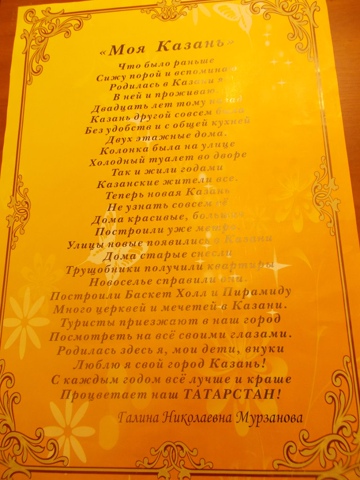 «Моя Казань»
Что было раньше
Сижу порой и вспоминаю
Родилась в Казани я,
В ней и проживаю.
Двадцать лет тому назад
Казань другой совсем была
Без удобств и с общей кухней
Двух этажные дома.
Колонка была на улице
Холодный туалет во дворе
Так и жили годами
Казанские жители все.
Теперь новая Казань
Не узнать совсем её
Дома красивые, большие
Построили уже метро,
Улицы новые появились в Казани
Дома старые снесли
Трущобники получили квартиры
Новоселье справили они.
Построили Баскет Холл и Пирамиду
Много церквей и мечетей в Казани.
Туристы приезжают в наш город
Посмотреть на всё своими глазами.
Родилась здесь я, мои дети, внуки
Люблю я свой город Казань!
С каждым годом всё лучше и краше
Процветает наш ТАТАРСТАН!
Галина Николаевна Мурзанова